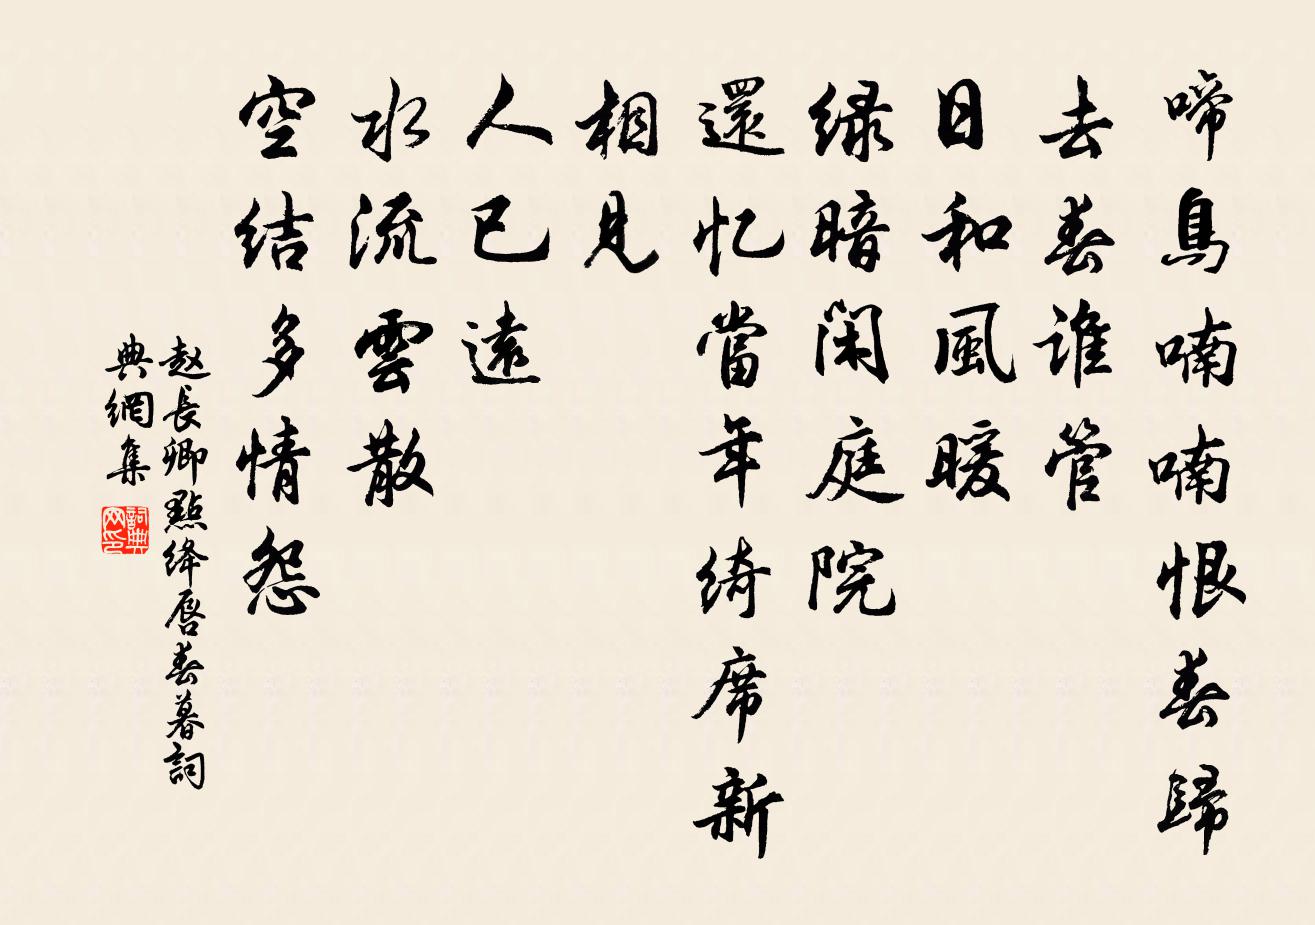 啼鳥喃喃恨春歸
去春誰管
日和風暖
緑暗閑庭院
還忆當年綺席新
相見
人已遠
水流雲散
空结多情怨
赵長卿點绛唇春暮詞
典網集
詞典
网印